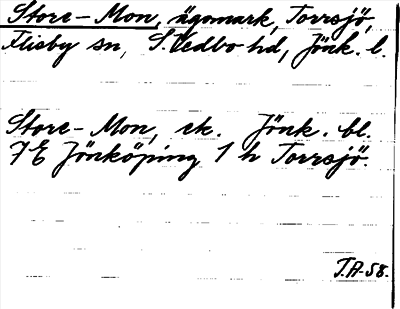 Store-Mon, ägomark, Torrsjö,
Flisby sn, S. Vedbo hd, Jönk. l.
Store-Mon, ek. Jönk. bl.
7E Jönköping 1 h Torrsjö.
T.A-58.